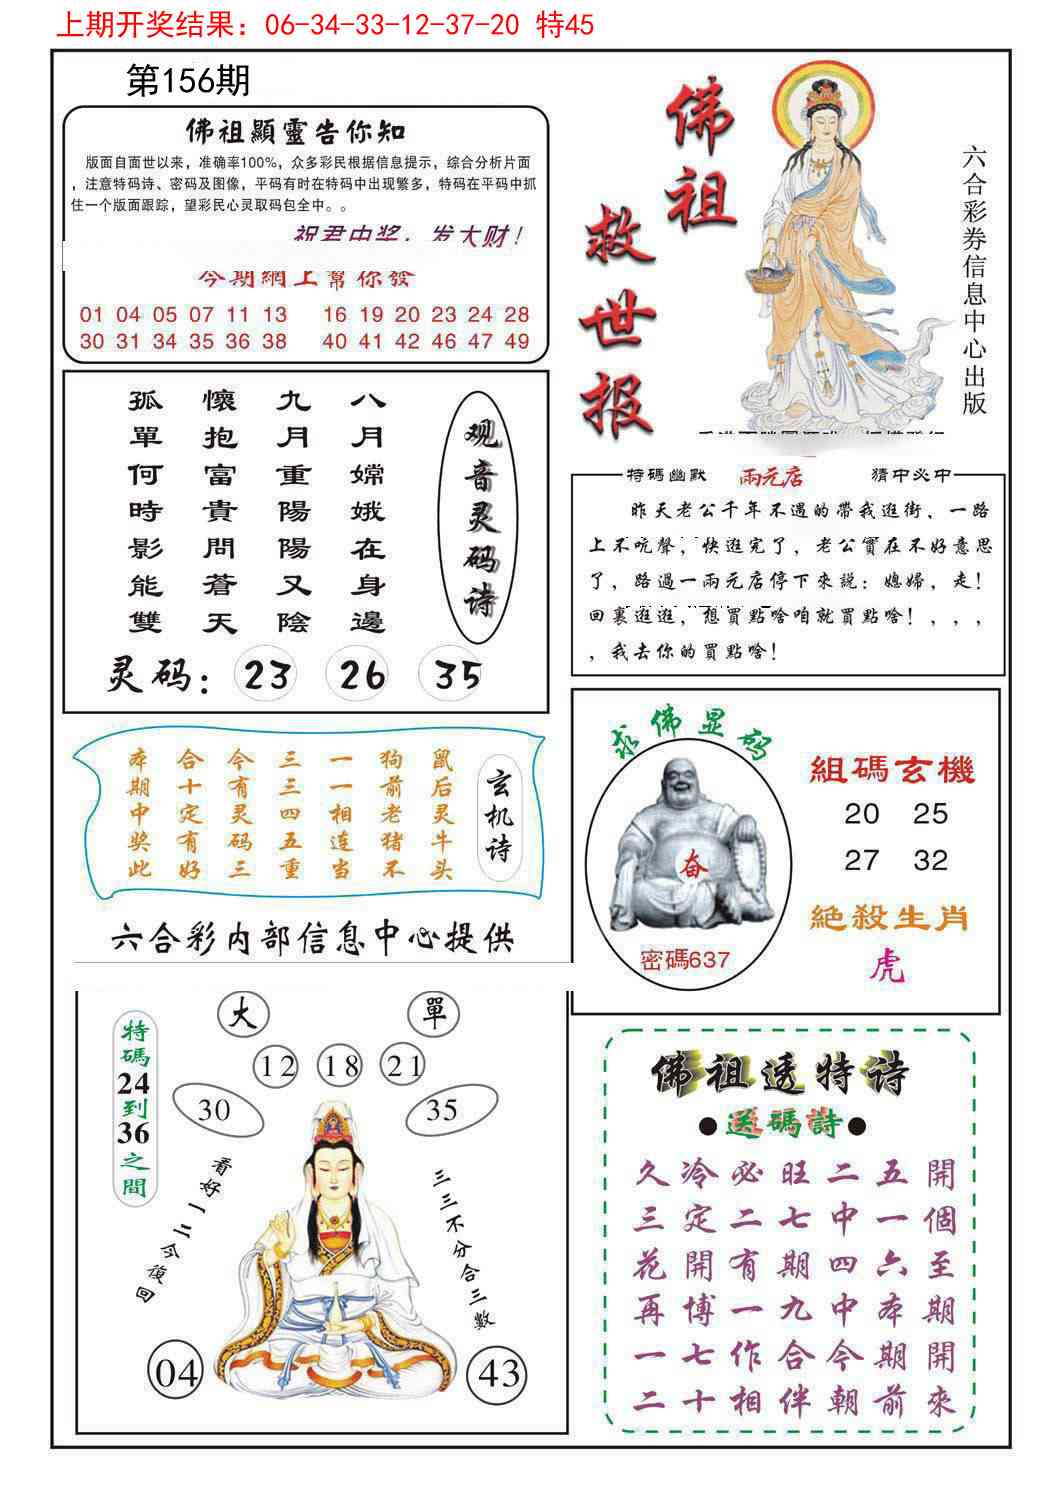 上期开奖结果：06-34-33-12-37-20 特45
第156期
佛祖顯靈告你知
版面自面世以来，准确率100%，众多彩民根据信息提示，综合分析片面
，注意特码诗、密码及图像，平码有时在特码中出现繁多，特码在平码中抓
住一个版面跟踪，望彩民心灵取码包全中。。
祝君中奖，发大财！
今期網上幫你發
01 04 05 07 11 13 16 19 20 23 24 28
30 31 34 35 36 38 40 41 42 46 47 49
佛祖
救世报
六合彩券信息中心出版
观音灵码诗
八月嫦娥在身邊
九月重陽陽又陰
懷抱富貴問蒼天
孤單何時影能雙
灵码：23 26 35
特碼幽默 兩元店 猜中必中
昨天老公千年不遇的帶我逛街、一路
上不吭聲，快逛完了，老公實在不好意思
了，路過一兩元店停下來説：媳婦，走！
回裏逛逛，想買點啥咱就買點啥！，，，
，我去你的買點啥！
玄机诗
鼠后灵牛头
狗前老猪不
一一相连当
三三四五重
今有灵码三
合十定有好
本期中奖此
六合彩内部信息中心提供
求佛显码
奋
密碼637
組碼玄機
20 25
27 32
絕殺生肖
虎
大 單
12 18 21
30 35
特碼24到36之間
看好一二今復回
三三不分合三數
04 43
佛祖透特诗
●送碼詩●
久冷必旺二五開
三定二七中一個
花開有期四六至
再博一九中本期
一七作合今期開
二十相伴朝前來